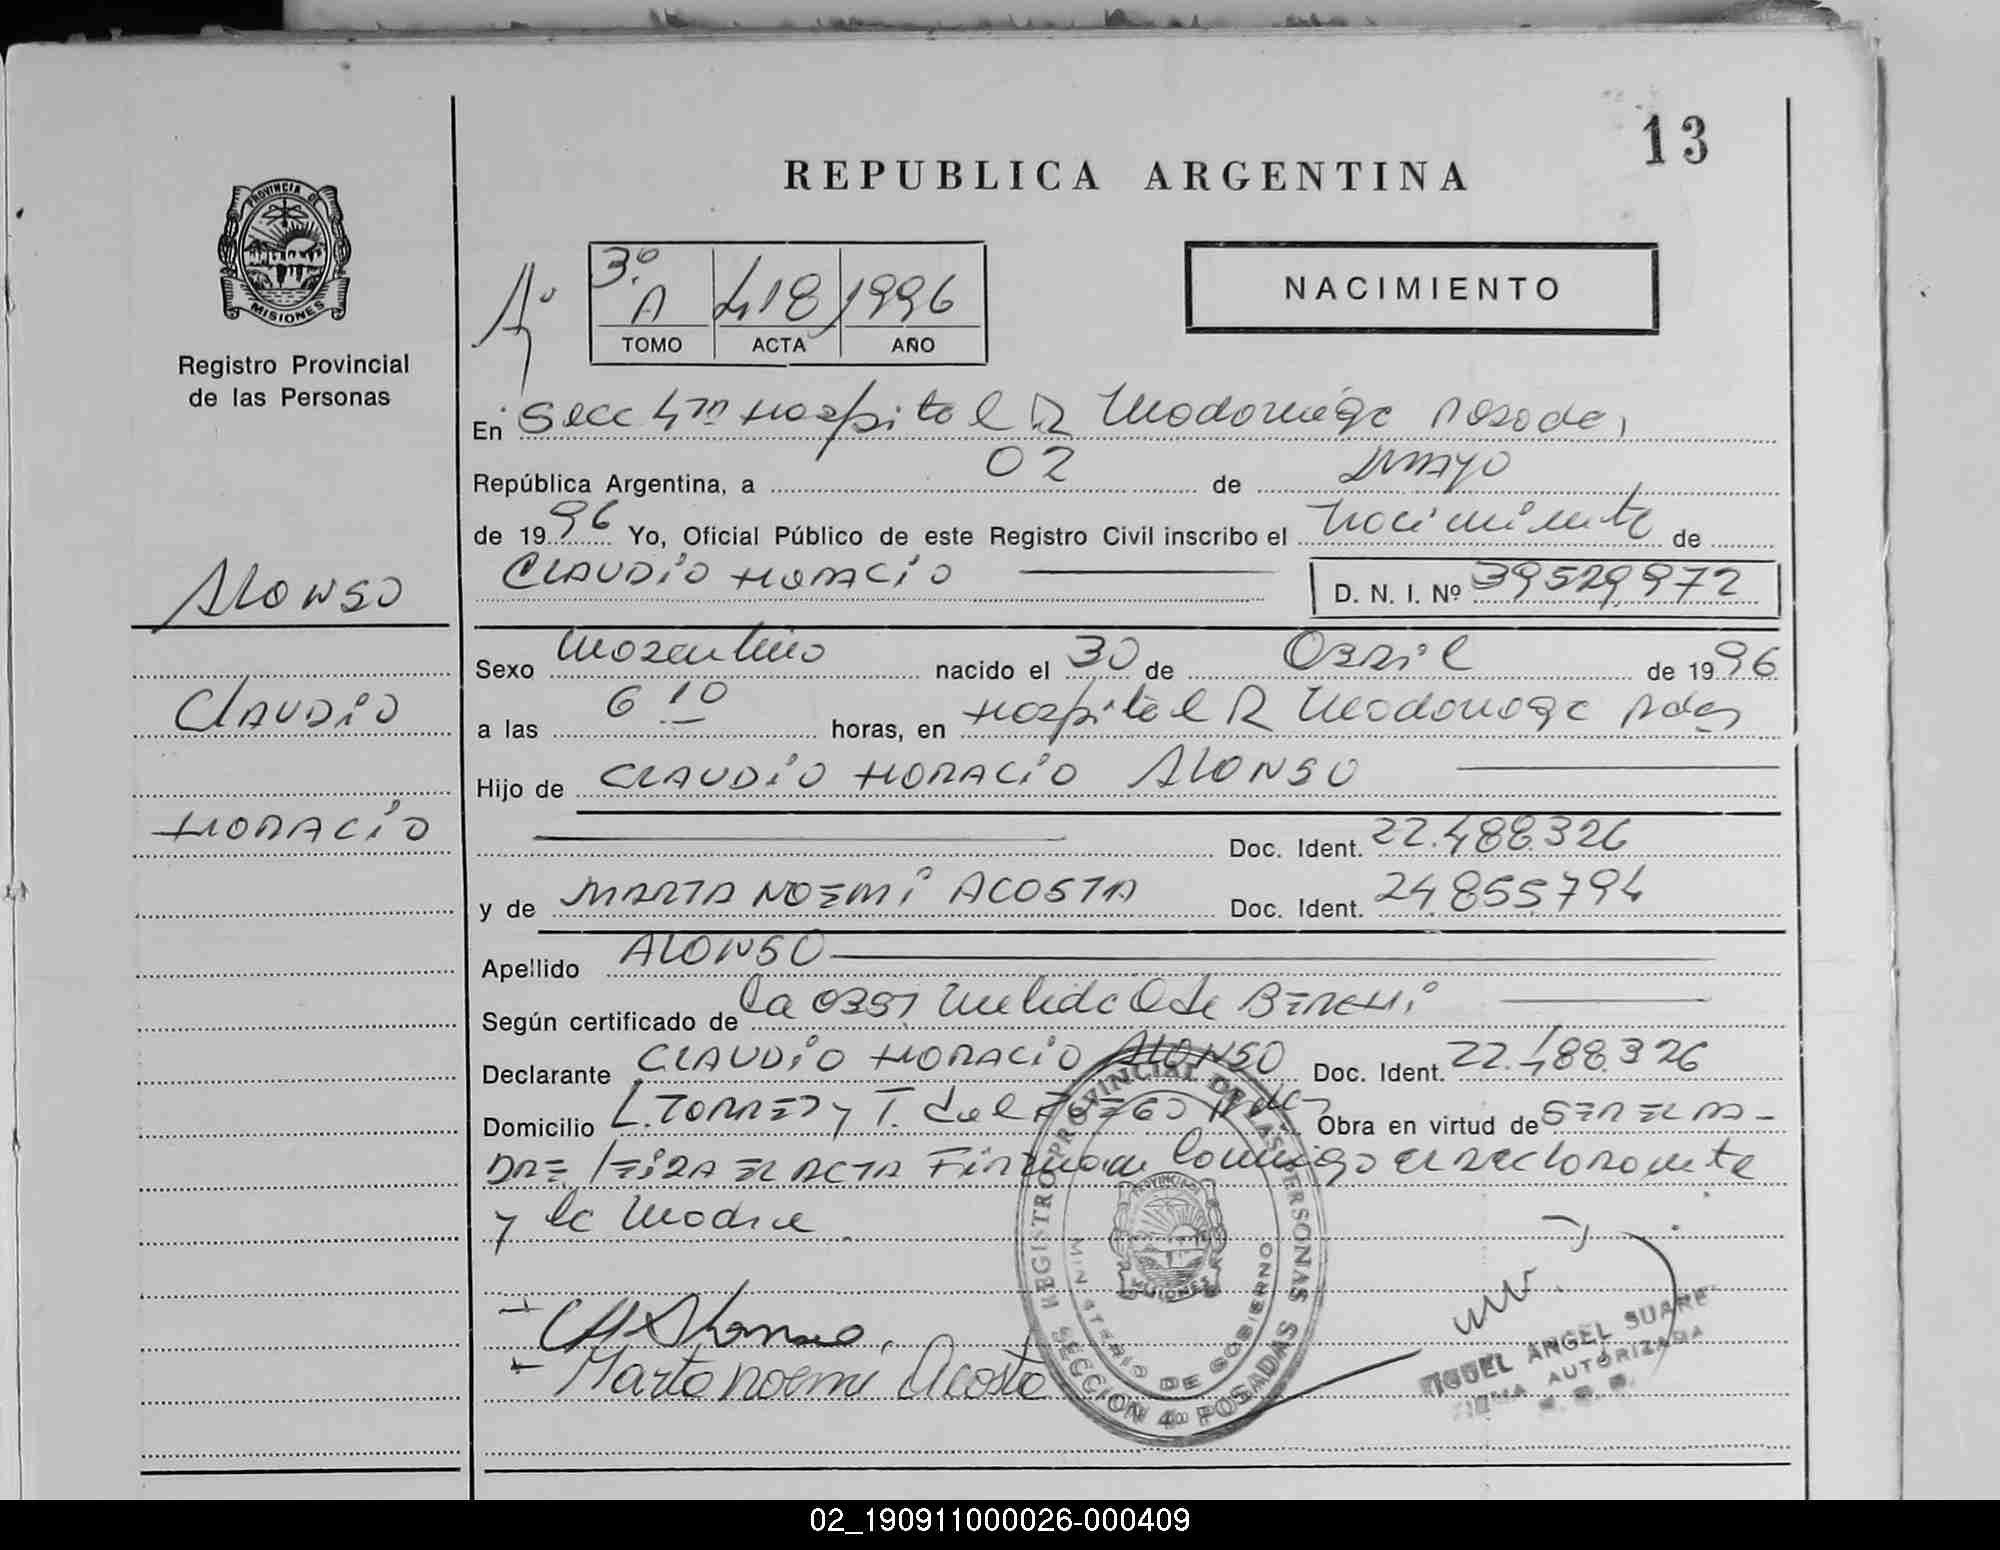 13
REPUBLICA ARGENTINA
PROVINCIA DE
MISIONES
Registro Provincial
de las Personas
3º A 418 1996
TOMO ACTA AÑO
NACIMIENTO
En Secc 4ta Hospital R Madariaga Posadas
República Argentina, a 02 de MAYO
de 1996 Yo, Oficial Público de este Registro Civil inscribo el Nacimiento de
CLAUDIO HORACIO D. N. I. Nº 39529972
ALONSO
CLAUDIO
HORACIO
Sexo Masculino nacido el 30 de Abril de 1996
a las 6 10 horas, en Hospital R Madariaga Pdas
Hijo de CLAUDIO HORACIO ALONSO
Doc. Ident. 22.488.326
y de MARTA NOEMI ACOSTA Doc. Ident. 24.855.794
Apellido ALONSO
Según certificado de la Obst
Declarante CLAUDIO HORACIO ALONSO Doc. Ident. 22.488.326
Domicilio L. TORRES y T. del FUEGO Pdas Obra en virtud de SER EL PA-
DRE LEIDA EL ACTA Firman Conmigo el Declarante
y la Madre
CHAlonso
Marta Noemi Acosta
REGISTRO PROVINCIAL DE LAS PERSONAS
MINISTERIO DE GOBIERNO
MISIONES
SECCION 4ta POSADAS
MIGUEL ANGEL SUAREZ
FIRMA AUTORIZADA
02_190911000026-000409